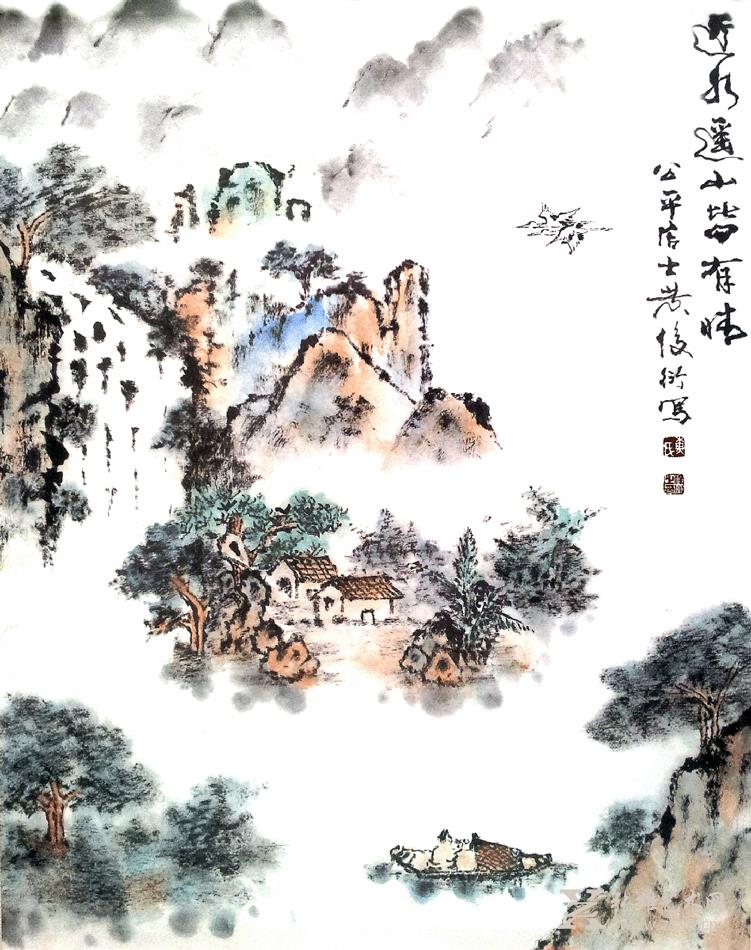 近水遥山皆有情
公平居士黄俊衍写
黄氏